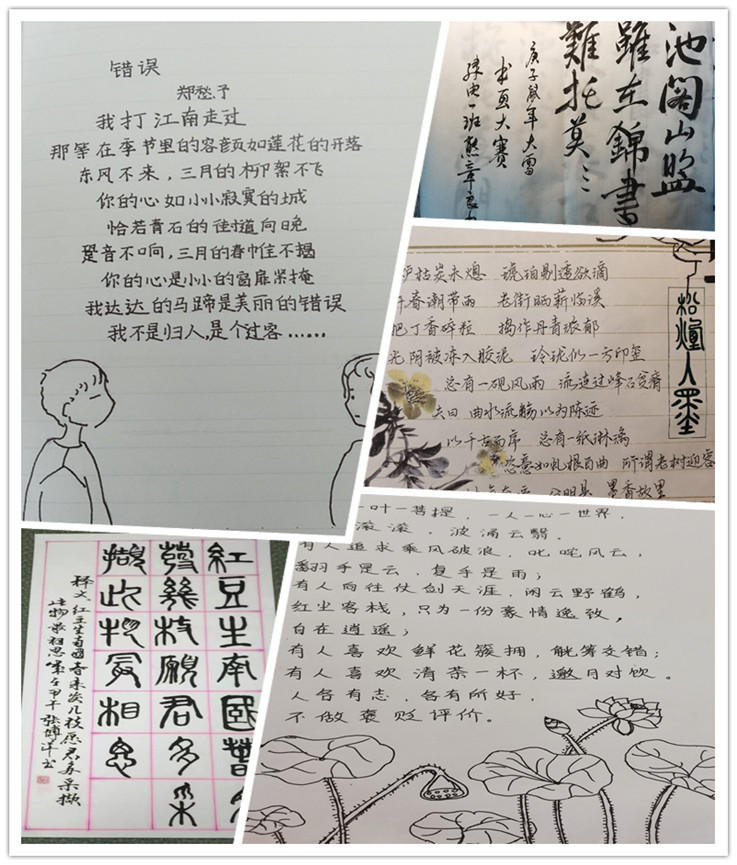 错误
郑愁予
我打江南走过
那等在季节里的容颜如莲花的开落
东风不来，三月的柳絮不飞
你的心如小小寂寞的城
恰若青石的街道向晚
跫音不响，三月的春帷不揭
你的心是小小的窗扉紧掩
我达达的马蹄是美丽的错误
我不是归人,是个过客……
池阁山盟
雖在錦書
難托莫
庚子鼠年大雪
书画大赛
一班熊章良
枯炭未熄 琥珀剔透欲滴
春潮带雨 老街晒薪临溪
把丁香碎粒 捣作丹青浓郁
阴被冻入胶泥 玲珑似一方印玺
总有一砚风雨 流连过峰
去日 曲水流觞以为陈迹
以千古而序 总有一纸淋漓
恣意如虬根百曲 所谓老树迎客
墨香故里
松煙入墨
紅豆生南國春
發幾枝願君多采
擷此物最相思
释文 红豆生南国春来发几枝愿君多采撷
此物最相思 甲午 张博洋书
一叶一菩提，一人一心一世界，
滚滚，波涌云翳。
有人追求乘风破浪，叱咤风云，
翻手是云，复手是雨；
有人向往仗剑天涯，闲云野鹤，
红尘客栈，只为一份豪情逸致，
自在逍遥；
有人喜欢鲜花簇拥，觥筹交错；
有人喜欢清茶一杯，邀月对饮。
人各有志，各有所好，
不做褒贬评价。